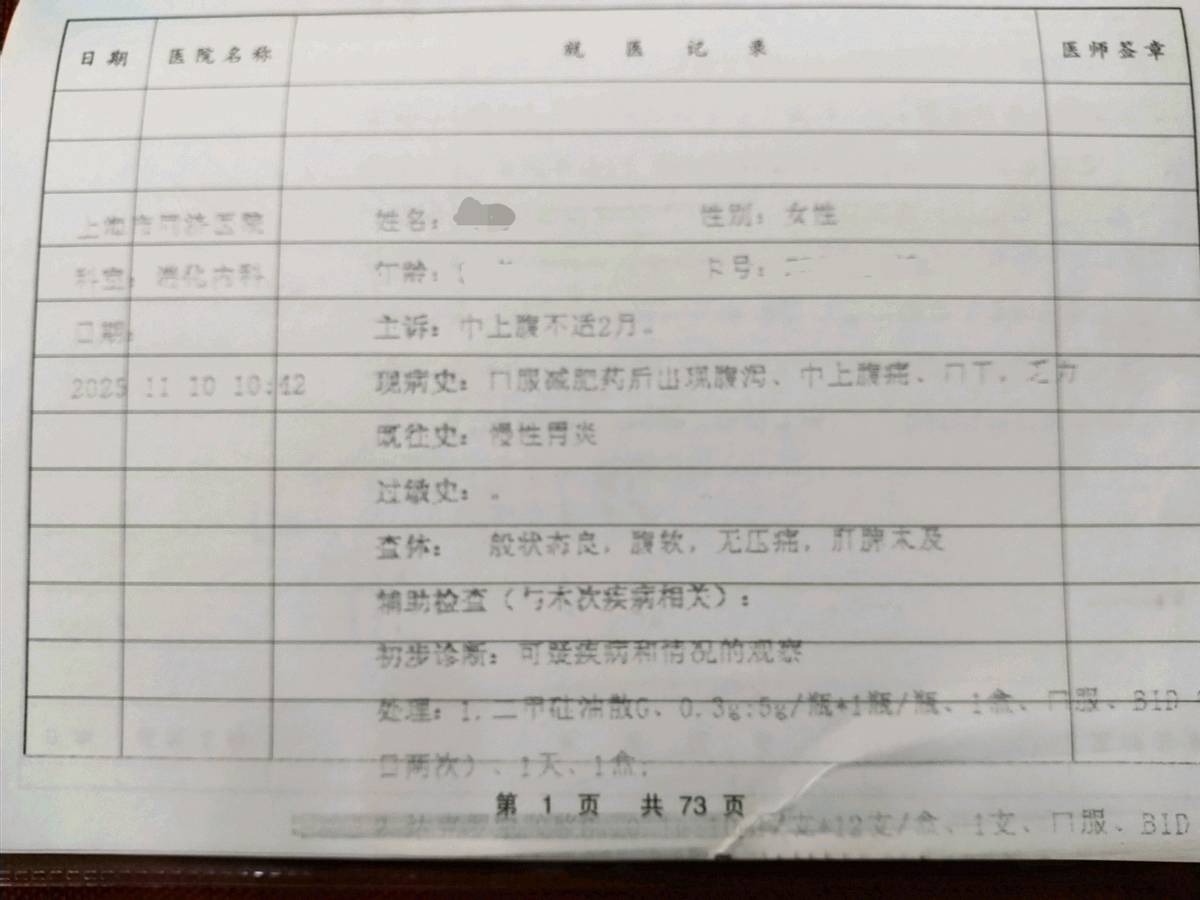 日期 医院名称 就医记录 医师签章
上海市同济医院 姓名： 性别：女性
科室：消化内科 年龄： 卡号：
日期： 主诉：中上腹不适2月。
2025 11 10 10:42 现病史：口服减肥药后出现腹泻、中上腹痛、口干，乏力
既往史：慢性胃炎
过敏史：。
查体： 一般状态良，腹软，无压痛，肝脾未及
辅助检查（与本次疾病相关）：
初步诊断：可疑疾病和情况的观察
处理：1.二甲硅油散G、0.3g:5g/瓶*1瓶/瓶、1盒、口服、BID
日两次）、1天、1盒；
第 1 页 共 73 页
2. /支*12支/盒、1支、口服、BID